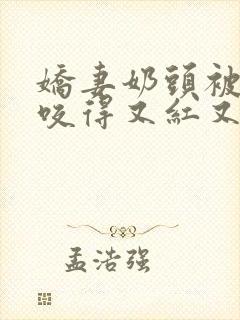 嬌妻奶頭被
咬得又紅又
孟浩强